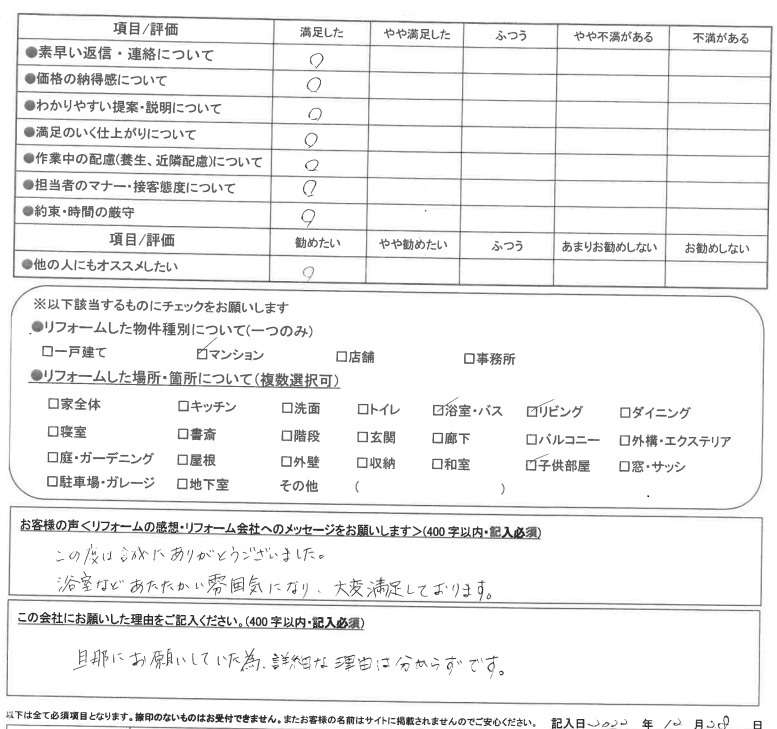 項目/評価 満足した やや満足した ふつう やや不満がある 不満がある
●素早い返信・連絡について ○
●価格の納得感について ○
●わかりやすい提案・説明について ○
●満足のいく仕上がりについて ○
●作業中の配慮(養生、近隣配慮)について ○
●担当者のマナー・接客態度について ○
●約束・時間の厳守 ○
項目/評価 勧めたい やや勧めたい ふつう あまりお勧めしない お勧めしない
●他の人にもオススメしたい ○
※以下該当するものにチェックをお願いします
●リフォームした物件種別について(一つのみ)
□一戸建て ☑マンション □店舗 □事務所
●リフォームした場所・箇所について(複数選択可)
□家全体 □キッチン □洗面 □トイレ ☑浴室・バス ☑リビング □ダイニング
□寝室 □書斎 □階段 □玄関 □廊下 □バルコニー □外構・エクステリア
□庭・ガーデニング □屋根 □外壁 □収納 □和室 ☑子供部屋 □窓・サッシ
□駐車場・ガレージ □地下室 その他 ( )
お客様の声<リフォームの感想・リフォーム会社へのメッセージをお願いします>(400字以内・記入必須)
この度は誠にありがとうございました。
浴室などあたたかい雰囲気になり、大変満足しております。
この会社にお願いした理由をご記入ください。(400字以内・記入必須)
旦那にお願いしていた為、詳細な理由は分からずです。
以下は全て必須項目となります。捺印のないものはお受付できません。またお客様の名前はサイトに掲載されませんのでご安心ください。 記入日2022 年 12 月28 日